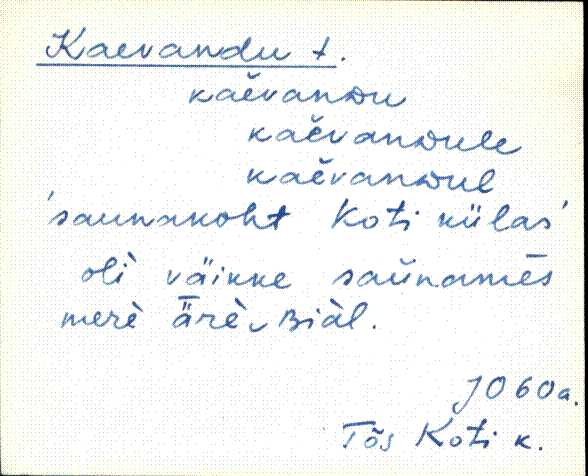 Kaevandu t.
kaĕvanᴅu
kaĕvanᴅule
kaĕvanᴅul
'saunakoht Koti külas'
olì väikke saŭnamēs
merè ǟrè, ʙiàl.
JO 60a.
Tõs Koti k.